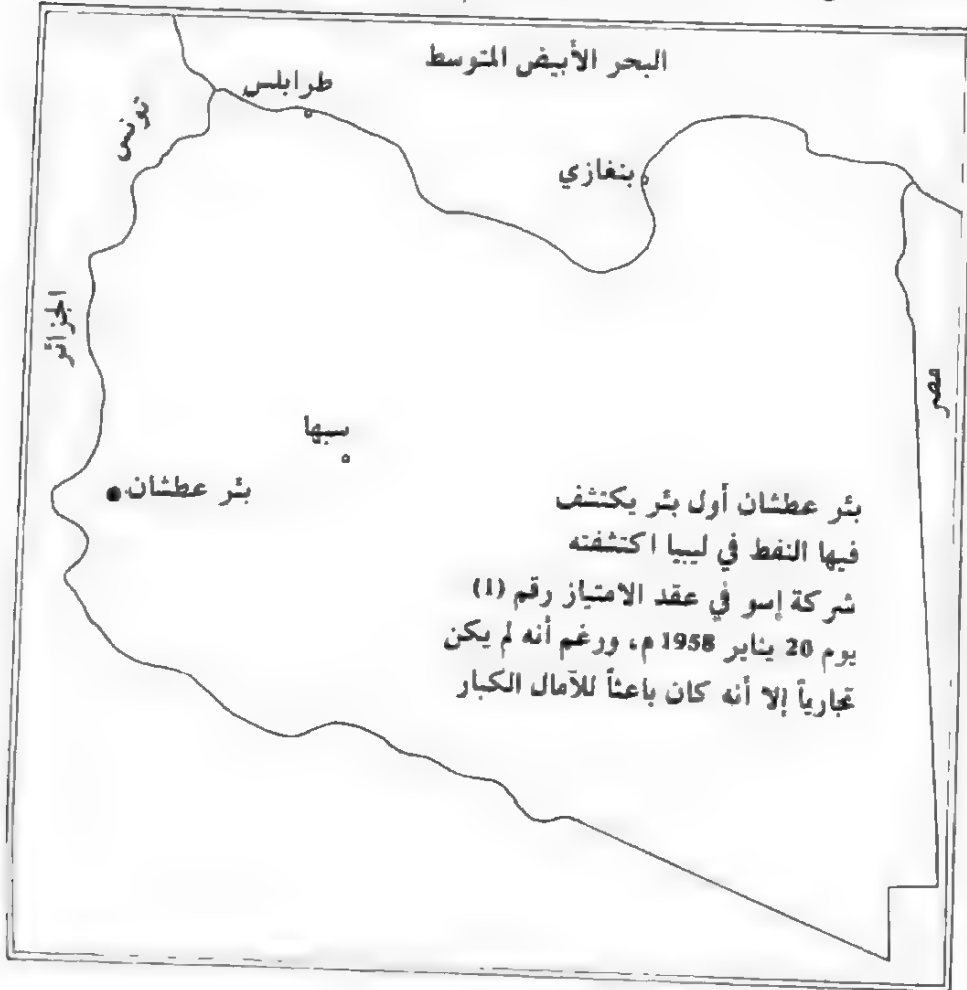 البحر الأبيض المتوسط
طرابلس
تونس
بنغازي
الجزائر
مصر
سبها
بئر عطشان
بئر عطشان أول بئر يكتشف
فيها النفط في ليبيا اكتشفته
شركة إسو في عقد الامتياز رقم (1)
يوم 20 يناير 1958 م، ورغم أنه لم يكن
تجارياً إلا أنه كان باعثاً للآمال الكبار